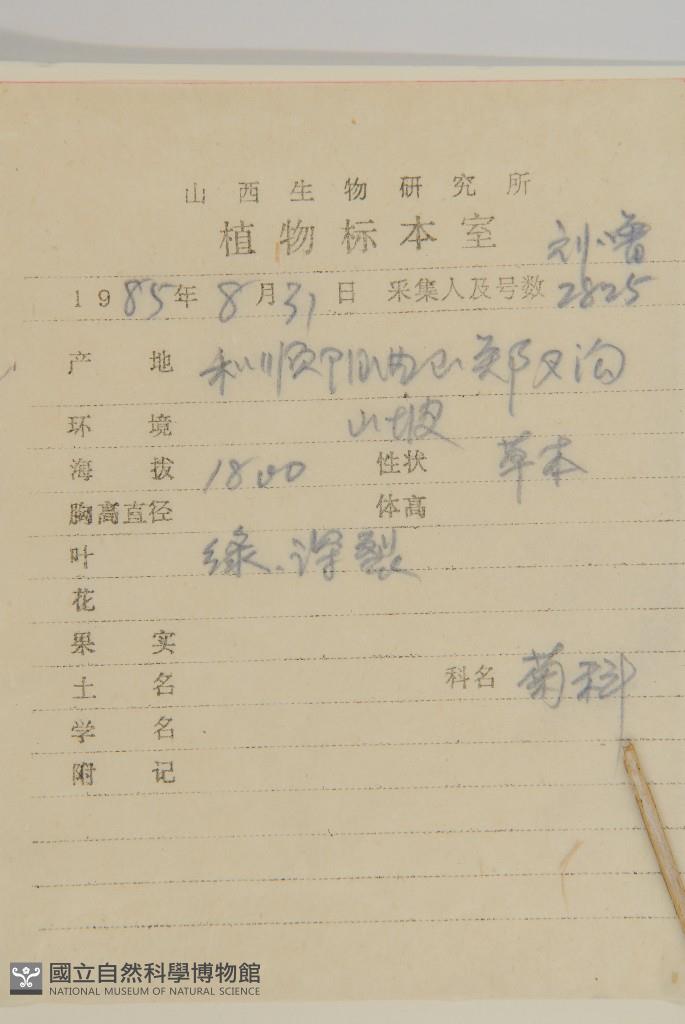 山西生物研究所
植物标本室
刘
1985年 8月31日 采集人及号数 2825
产地
环境 山坡
海拔 1800 性状 草本
胸高直径 体高
叶 绿、深裂
花
果实
土名 科名 菊科
学名
附记
國立自然科學博物館
NATIONAL MUSEUM OF NATURAL SCIENCE